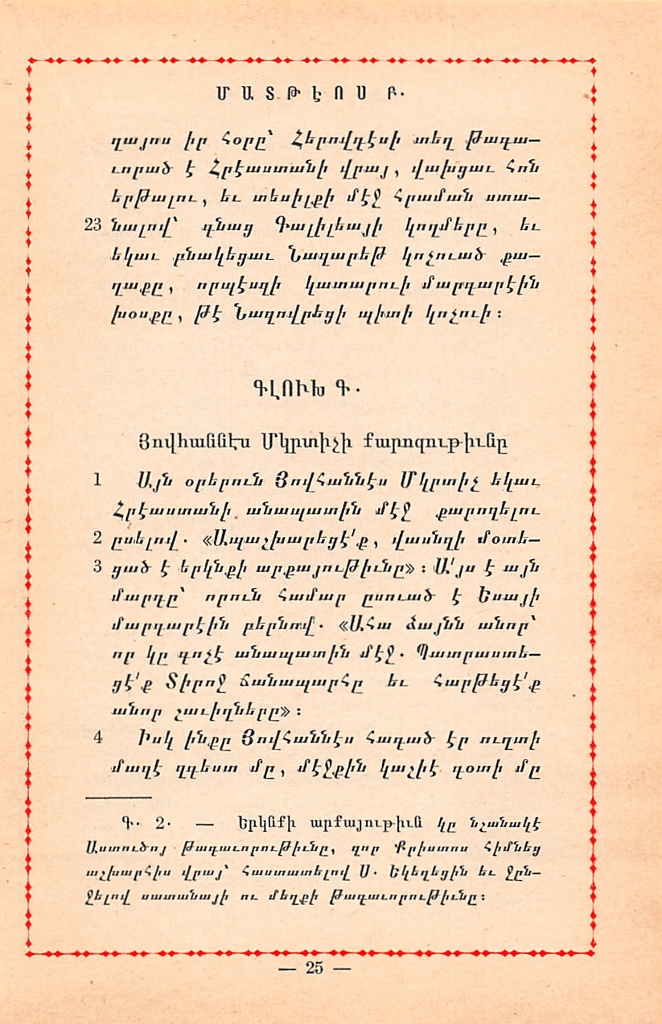 ՄԱՏԹԷՈՍ Բ.
ղայոս իր հօրը՝ Հերովդէսի տեղ թագա—
ւորած է Հրէաստանի վրայ, վախցաւ հոն
երթալու, եւ տեսիլքի մէջ հրաման ստա—
23 նալով՝ գնաց Գալիլեայի կողմերը, եւ
եկաւ բնակեցաւ Նազարեթ կոչուած քա—
ղաքը, որպէսզի կատարուի մարգարէին
խօսքը, թէ Նազովրեցի պիտի կոչուի։
ԳԼՈՒԽ Գ.
Յովհաննէս Մկրտիչի քարոզութիւնը
1 Այն օրերուն Յովհաննէս Մկրտիչ եկաւ
Հրէաստանի անապատին մէջ քարոզելու
2 ըսելով. «Ապաշխարեցէ՛ք, վասնզի մօտե—
3 ցած է երկնքի արքայութիւնը»։ Ա՛յս է այն
մարդը՝ որուն համար ըսուած է Եսայի
մարգարէին բերնով. «Ահա ձայնն անոր՝
որ կը գոչէ անապատին մէջ. Պատրաստե—
ցէ՛ք Տիրոջ ճանապարհը եւ հարթեցէ՛ք
անոր շաւիղները»։
4 Իսկ ինքը Յովհաննէս հագած էր ուղտի
մազէ զգեստ մը, մէջքին կաշիէ գօտի մը
Գ. 2. — Երկնքի արքայութիւն կը նշանակէ
Աստուծոյ թագաւորութիւնը, զոր Քրիստոս հիմնեց
աշխարհիս վրայ՝ հաստատելով Ս. Եկեղեցին եւ ջըն—
ջելով սատանայի ու մեղքի թագաւորութիւնը։
— 25 —